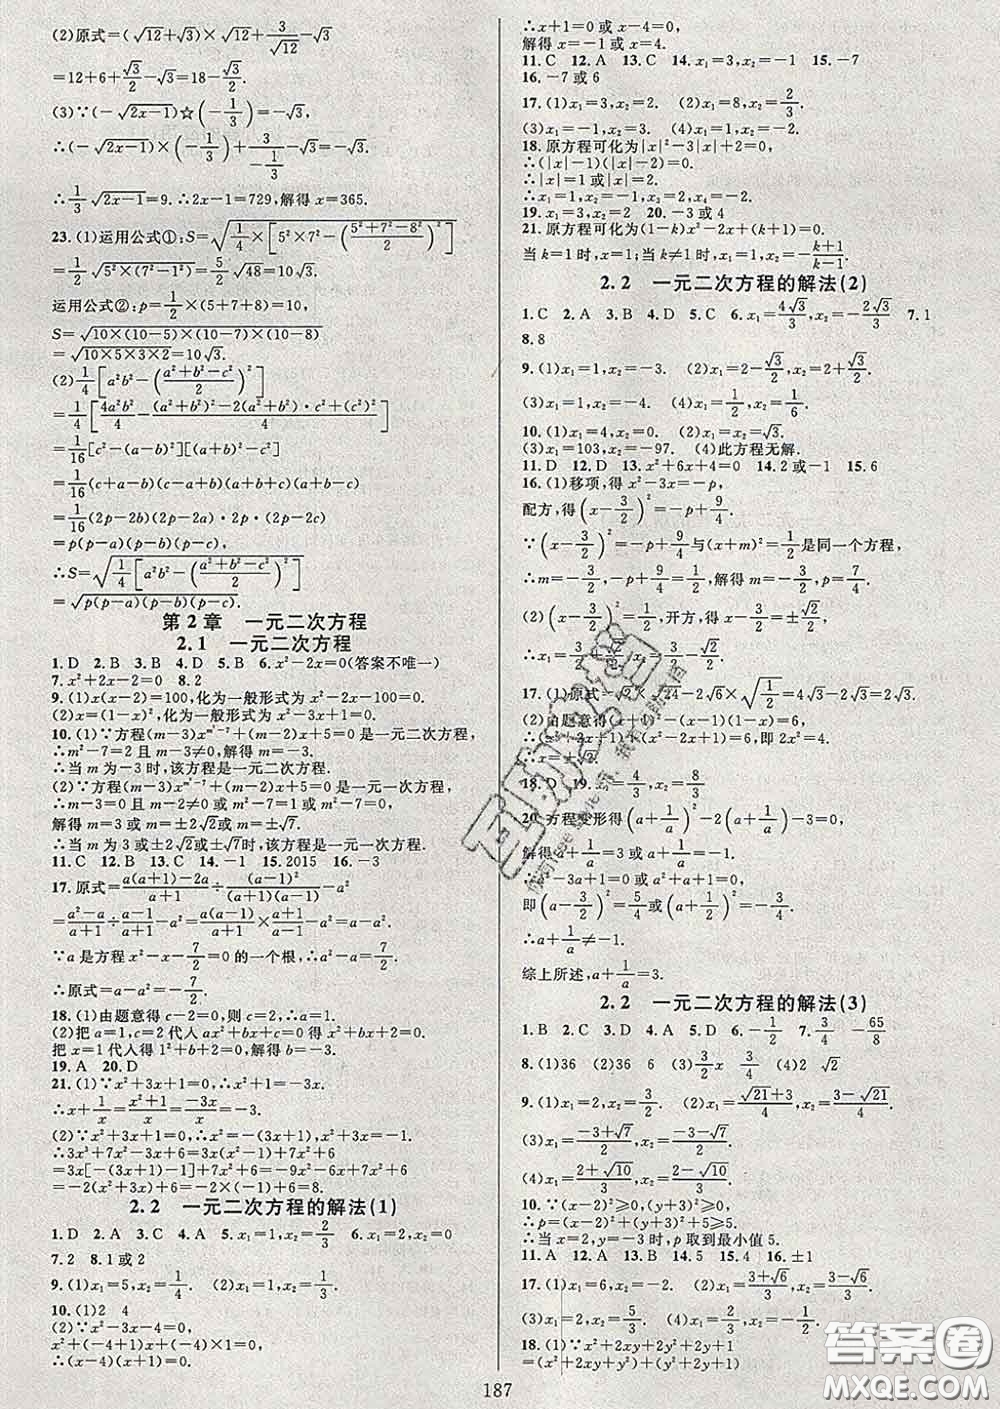 (2)原式=(√12+√3)×√12+3/√12-√3
=12+6+√3/2-√3=18-√3/2.
(3)∵(-√(2x-1))☆(-1/3)=-√3,
∴(-√(2x-1))×(-1/3)+3/(-1/3)-√3=-√3.
∴1/3√(2x-1)=9.∴2x-1=729,解得x=365.
23.(1)运用公式①:S=√(1/4×[5²×7²-((5²+7²-8²)/2)²])
=1/2√(5²(7²-1²))=5/2√48=10√3.
运用公式②:p=1/2×(5+7+8)=10,
S=√(10×(10-5)×(10-7)×(10-8))
=√(10×5×3×2)=10√3.
(2)1/4[a²b²-((a²+b²-c²)/2)²]
=1/4[4a²b²/4-((a²+b²)²-2(a²+b²)·c²+(c²)²)/4]
=1/16[c²-(a-b)²][(a+b)²-c²]
=1/16(c+a-b)(c-a+b)(a+b+c)(a+b-c)
=1/16(2p-2b)(2p-2a)·2p·(2p-2c)
=p(p-a)(p-b)(p-c),
∴S=√(1/4[a²b²-((a²+b²-c²)/2)²])
=√(p(p-a)(p-b)(p-c)).
第2章 一元二次方程
2.1 一元二次方程
1.D 2.B 3.B 4.D 5.B 6.x²-2x=0(答案不唯一)
7.x²+2x-2=0 8.2
9.(1)x(x-2)=100,化为一般形式为x²-2x-100=0.
(2)x=(1-x)²,化为一般形式为x²-3x+1=0.
10.(1)∵方程(m-3)x^(m²-7)+(m-2)x+5=0是一元二次方程,
∴m²-7=2且m-3≠0,解得m=-3.
∴当m为-3时,该方程是一元二次方程.
(2)∵方程(m-3)x^(m²-7)+(m-2)x+5=0是一元一次方程,
∴m-3=0且m-2≠0或m²-7=1或m²-7=0,
解得m=3或m=±2√2或m=±√7.
∴当m为3或±2√2或±√7时,该方程是一元一次方程.
11.C 12.B 13.C 14.-1 15.2015 16.-3
17.原式=(a(a+1)-2a)/(a+1)÷(a-1)²/((a+1)(a-1))-a²
=(a²-a)/(a+1)÷(a-1)/(a+1)-a²=a(a-1)/(a+1)×(a+1)/(a-1)-a²=a-a².
∵a是方程x²-x-7/2=0的一个根,∴a²-a=7/2.
∴原式=a-a²=-7/2.
18.(1)由题意得c-2=0,则c=2.∴c=2.
(2)把a=1,c=2代入ax²+bx+c=0得x²+bx+2=0.
把x=1代入得1²+b+2=0,解得b=-3.
19.A 20.D
21.(1)∵x²+3x+1=0,∴x²+1=-3x.
∴x+1/x=(x²+1)/x=-3x/x=-3.
(2)∵x²+3x+1=0,∴x²=-3x-1.
∴3x³+7x²-3x+6=3x(x²-1)+7x²+6
=3x[-(3x+1)-1]+7x²+6=-9x²-6x+7x²+6
=-2x²-6x+6=-2(x²+3x)+6=2+6=8.
2.2 一元二次方程的解法(1)
1.D 2.A 3.C 4.A 5.x₁=1,x₂=2/3 6.x₁=2,x₂=0
7.2 8.1或2
9.(1)x₁=5,x₂=1/4. (2)x₁=1,x₂=-1/4.
10.(1)2 4
(2)∵x²-3x-4=0,
x²+(-4+1)x+(-4)×1=0,
∴(x-4)(x+1)=0.
∴x+1=0或x-4=0,
解得x=-1或x=4.
11.C 12.A 13.C 14.x₁=3,x₂=-1 15.-7
16.-7或6
17.(1)x₁=3,x₂=2. (2)x₁=8,x₂=2/3.
(3)x₁=-1,x₂=3. (4)x₁=-1,x₂=-2.
18.原方程可化为|x|²-3|x|+2=0,
∴(|x|-1)(|x|-2)=0.
∴|x|=1或|x|=2.
∴x₁=1,x₂=-1,x₃=2,x₄=-2.
19.x₁=3,x₂=2 20.-3或4
21.原方程可化为(1-k)x²-2x+(k+1)=0.
当k=1时,x=1;当k≠1时,x₁=1,x₂=-(k+1)/(k-1).
2.2 一元二次方程的解法(2)
1.C 2.A 3.B 4.D 5.C 6.x₁=4√3/3,x₂=-2√3/3 7.1
8.8
9.(1)x₁=3,x₂=-3. (2)x₁=2-√3/2,x₂=2+√3/2.
(3)x₁=1,x₂=-4. (4)x₁=1/2,x₂=1/6.
10.(1)x₁=4,x₂=0. (2)x₁=x₂=√3.
(3)x₁=103,x₂=-97. (4)此方程无解.
11.D 12.D 13.x²+6x+4=0 14.2或-1 15.6
16.(1)移项,得x²-3x=-p,
配方,得(x-3/2)²=-p+9/4.
∵(x-3/2)²=-p+9/4与(x+m)²=1/2是同一个方程,
∴m=-3/2,-p+9/4=1/2,解得m=-3/2,p=7/4.
(2)(x-3/2)²=1/2,开方,得x-3/2=±√2/2.
∴x₁=3/2+√2/2,x₂=3/2-√2/2.
17.(1)原式=√2×√24-2√6×√(1/2)=4√3-2√3=2√3.
(2)由题意得(x+1)²-(x-1)(1-x)=6,
∴(x+1)²+(x-1)²=6,即2x²=4.
∴x=±√2.
18.D
20.方程变形得(a+1/a)²-2(a+1/a)-3=0,
解得a+1/a=3或a+1/a=-1.
∴a²-3a+1=0或a²+a+1=0,
即(a-3/2)²=5/4或(a+1/2)²=-3/4.
∴a+1/a≠-1.
综上所述,a+1/a=3.
2.2 一元二次方程的解法(3)
1.B 2.C 3.D 4.A 5.D 6.-1/2 7.3/4 -65/8
8.(1)36 (2)36 6 (3)3/2x 3/4 (4)2 √2
9.(1)x₁=2,x₂=3/2. (2)x₁=(√21+3)/4,x₂=(3-√21)/4.
(3)x₁=(-3+√7)/2,x₂=(-3-√7)/2.
(4)x₁=(2+√10)/3,x₂=(2-√10)/3.
10.∵(x-2)²≥0,(y+3)²≥0,
∴p=(x-2)²+(y+3)²+5≥5.
∴当x=2,y=-3时,p取到最小值5.
11.A 12.A 13.B 14.5 15.4 16.±1
17.(1)x₁=6,x₂=-2. (2)x₁=(3+√6)/3,x₂=(3-√6)/3.
(3)x₁=2,x₂=5/3. (4)x₁=2,x₂=-2/3.
18.(1)∵x²+2xy+2y²+2y+1
=(x²+2xy+y²)+(y²+2y+1)
187
答案圈
MXQE.COM